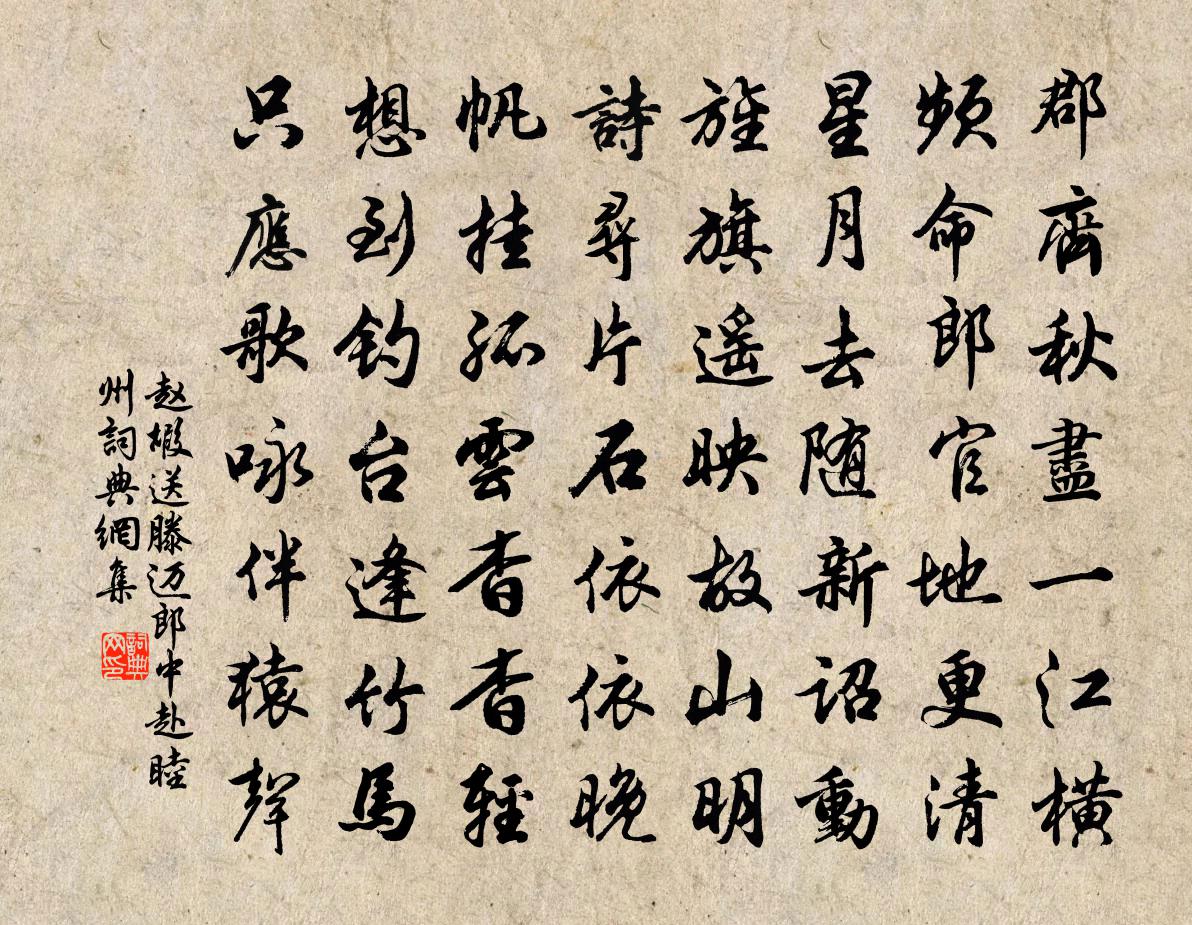 郡齊秋盡一江橫
頻命郎官地更清
星月去随新詔動
旌旗遥映故山明
詩尋片石依依晚
帆挂孤雲杳杳輕
想到钓台逢竹馬
只應歌咏伴猿聲
赵嘏送滕迈郎中赴睦
州詞典網集
詞典
网印